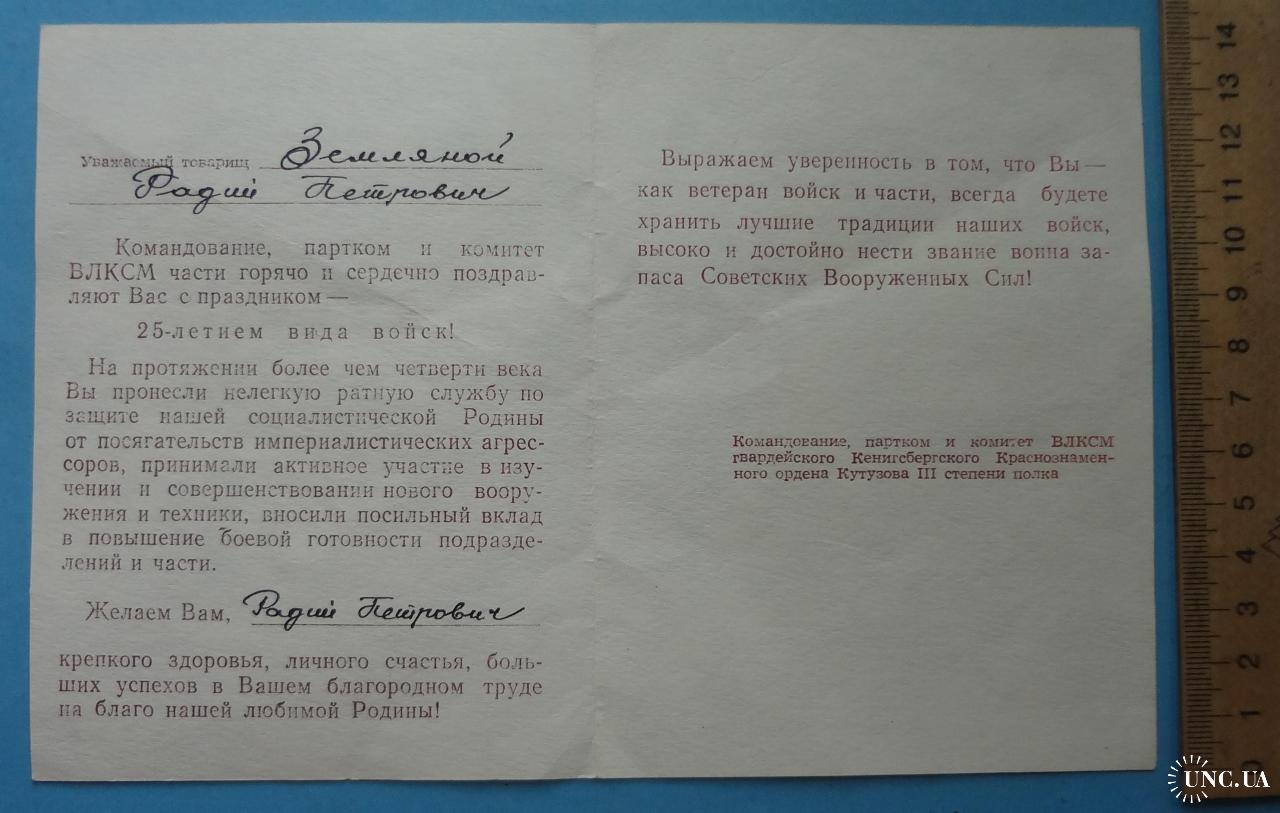 Уважаемый товарищ Земляной
Радий Петрович
Командование, партком и комитет
ВЛКСМ части горячо и сердечно поздрав-
ляют Вас с праздником —
25-летием вида войск!
На протяжении более чем четверти века
Вы пронесли нелегкую ратную службу по
защите нашей социалистической Родины
от посягательств империалистических агрес-
соров, принимали активное участие в изу-
чении и совершенствовании нового воору-
жения и техники, вносили посильный вклад
в повышение боевой готовности подразде-
лений и части.
Желаем Вам, Радий Петрович
крепкого здоровья, личного счастья, боль-
ших успехов в Вашем благородном труде
на благо нашей любимой Родины!
Выражаем уверенность в том, что Вы —
как ветеран войск и части, всегда будете
хранить лучшие традиции наших войск,
высоко и достойно нести звание воина за-
паса Советских Вооруженных Сил!
Командование, партком и комитет ВЛКСМ
гвардейского Кенигсбергского Краснознамен-
ного ордена Кутузова III степени полка
14
13
12
11
10
9
8
7
6
5
4
3
2
1
0
UNC.UA